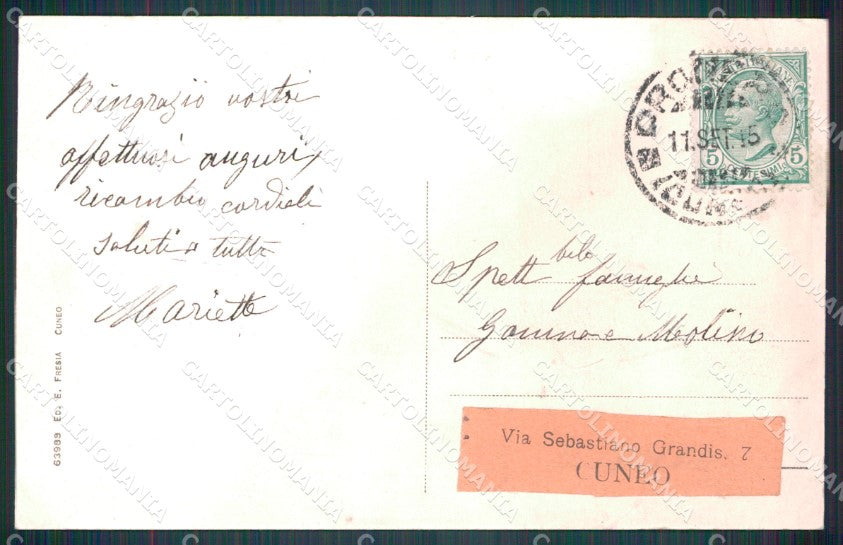 Ringrazio vostri
affettuosi auguri
ricambio cordiali
saluti a tutti
Mariette
63989 Ed. E. Fresia Cuneo
DRONERO
11.SET.15
CUNEO
5 5
Spett bile famiglie
e Molino
Via Sebastiano Grandis, 7
CUNEO
CARTOLINOMANIA